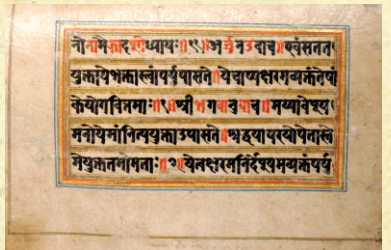 नोनामैकादशोध्यायः॥ ॥अर्जुनउवाच॥एवंसतत
युक्तायेभक्तास्त्वांपर्युपासते॥येचाप्यक्षरमव्यक्तंतेषां
केयोगवित्तमाः॥१॥श्रीभगवानुवाच॥मय्यावेश्य
मनोयेमांनित्ययुक्ताउपासते॥श्रद्धयापरयोपेतास्ते
मेयुक्ततमामताः॥२॥येत्वक्षरमनिर्देश्यमव्यक्तंपर्यु